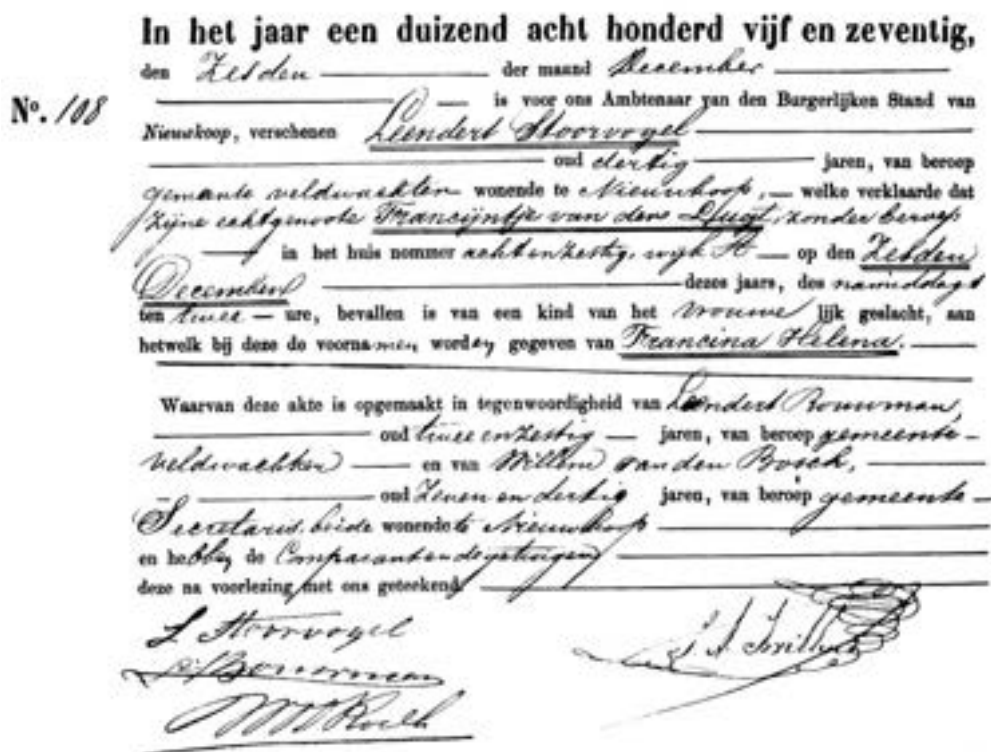 In het jaar een duizend acht honderd vijf en zeventig,
den Zesden der maand December
No. 108
is voor ons Ambtenaar van den Burgerlijken Stand van
Nieuwkoop, verschenen Leendert Stoorvogel
oud dertig jaren, van beroep
gemeente veldwachter wonende te Nieuwkoop, welke verklaarde dat
zijne echtgenoote Francijntje van der Sluijt, zonder beroep
in het huis nommer acht en zestig, wijk A op den Zesden
December dezes jaars, des namiddags
ten twee ure, bevallen is van een kind van het vrouwelijk geslacht, aan
hetwelk bij deze de voornamen worden gegeven van Francina Helena.
Waarvan deze akte is opgemaakt in tegenwoordigheid van Leendert Bouwman,
oud twee en zestig jaren, van beroep gemeente-
veldwachter en van Willem van den Bosch,
oud Zeven en dertig jaren, van beroep gemeente-
Secretaris, beide wonende te Nieuwkoop
en hebben de Comparant en de getuigen
deze na voorlezing met ons geteekend.
L Stoorvogel
Bouwman